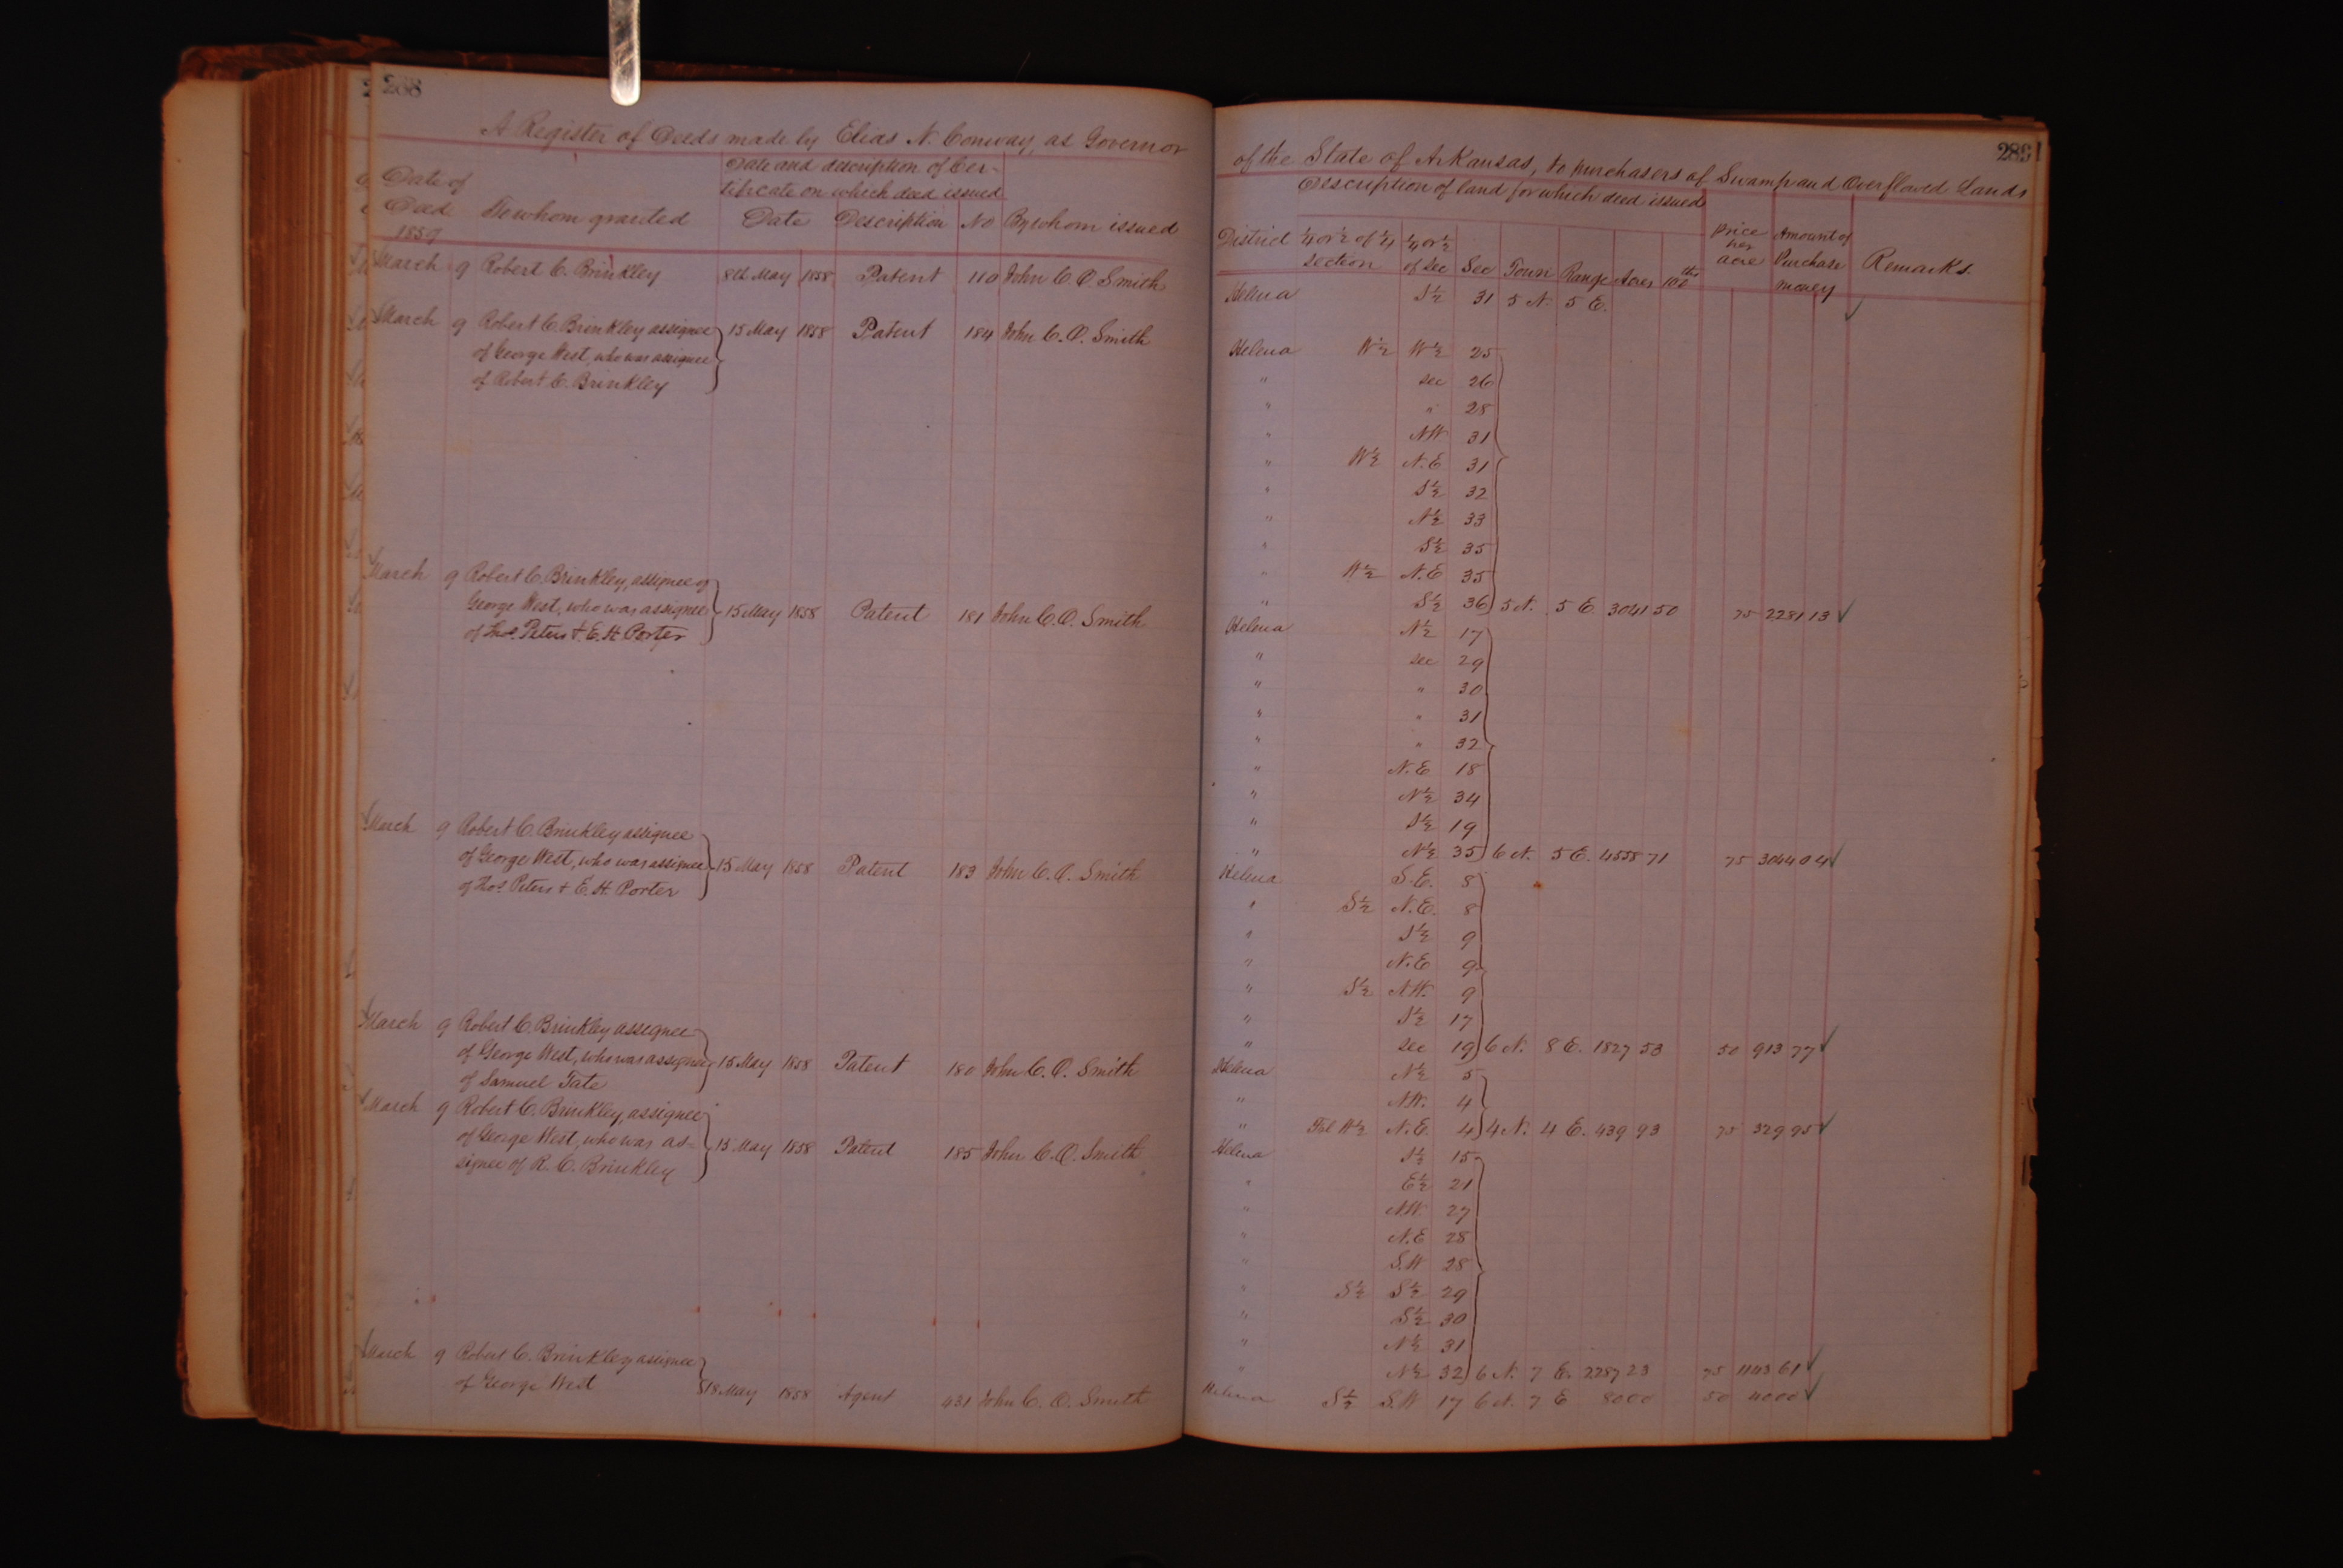 288
A Register of Deeds made by Elias N. Conway, as Governor
Date of Deed
To whom granted
Date and description of Cer-
tificate on which deed issued
Date Description No By whom issued
1859
March 9 Robert C. Brinkley 8th May 1858 Patent 110 John C. O. Smith
March 9 Robert C. Brinkley assignee 15 May 1858 Patent 184 John C. O. Smith
of George West, who was assignee
of Robert C. Brinkley
March 9 Robert C. Brinkley, assignee of
George West, who was assignee 15 May 1858 Patent 181 John C. O. Smith
of Thos. Peters & E. H. Porter
March 9 Robert C. Brinkley assignee
of George West, who was assignee 15 May 1858 Patent 183 John C. O. Smith
of Thos. Peters + E. H. Porter
March 9 Robert C. Brinkley assignee
of George West, who was assignee 15 May 1858 Patent 180 John C. O. Smith
of Samuel Tate
March 9 Robert C. Brinkley, assignee
of George West, who was as- 15 May 1858 Patent 185 John C. O. Smith
signee of R. C. Brinkley
March 9 Robert C. Brinkley assignee
of George West 18 May 1858 Agent 431 John C. O. Smith
289
of the State of Arkansas, to purchasers of Swamp and Overflowed Lands
Description of land for which deed issued
District ¼ or ½ of ¼ section ¼ or ½ of Sec Sec Town Range Acres 100ths
price per acre
Amount of Purchase money
Remarks.
Helena S½ 31 5 N. 5 E. ✓
Helena W½ W½ 25
" sec 26
" " 28
" NW 31
" W½ N.E 31
" S½ 32
" N½ 33
" S½ 35
" W½ N.E 35
" S½ 36 5 N. 5 E. 3041 50 75 2281 13 ✓
Helena N½ 17
" sec 29
" " 30
" " 31
" " 32
" N.E 18
" N½ 34
" S½ 19
" N½ 35 6 N. 5 E. 4558 71 75 3044 04 ✓
Helena S.E. 8
" S½ N.E. 8
" S½ 9
" N.E 9
" S½ N.W. 9
" S½ 17
" sec 19 6 N. 8 E. 1827 53 50 913 77 ✓
Helena N½ 5
" N.W. 4
" Frl W½ N.E. 4 4 N. 4 E. 439 93 75 329 95 ✓
Helena S½ 15
" E½ 21
" N.W. 27
" N.E 28
" S.W 28
" S½ S½ 29
" S½ 30
" N½ 31
" N½ 32 6 N. 7 E. 2287 23 75 1143 61 ✓
Helena S½ S.W 17 6 N. 7 E 80 00 50 40 00 ✓